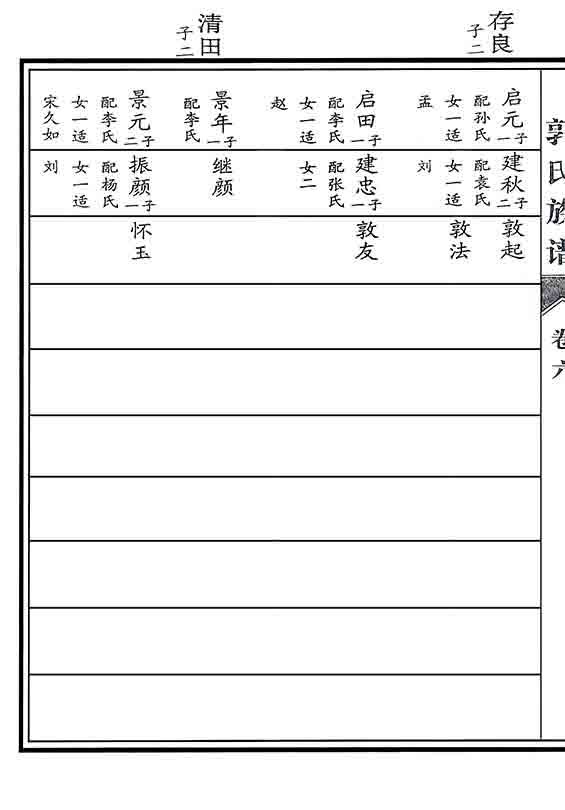 存良
子二
清田
子二
郭氏族谱
卷六
启元
一子
配孙氏
女一适
孟
启田
一子
配李氏
女一适
赵
景年
一子
配李氏
景元
二子
配李氏
女一适
宋久如
建秋
二子
配袁氏
女一适
刘
建忠
一子
配张氏
女二
继颜
振颜
一子
配杨氏
女一适
刘
敦起
敦法
敦友
怀玉